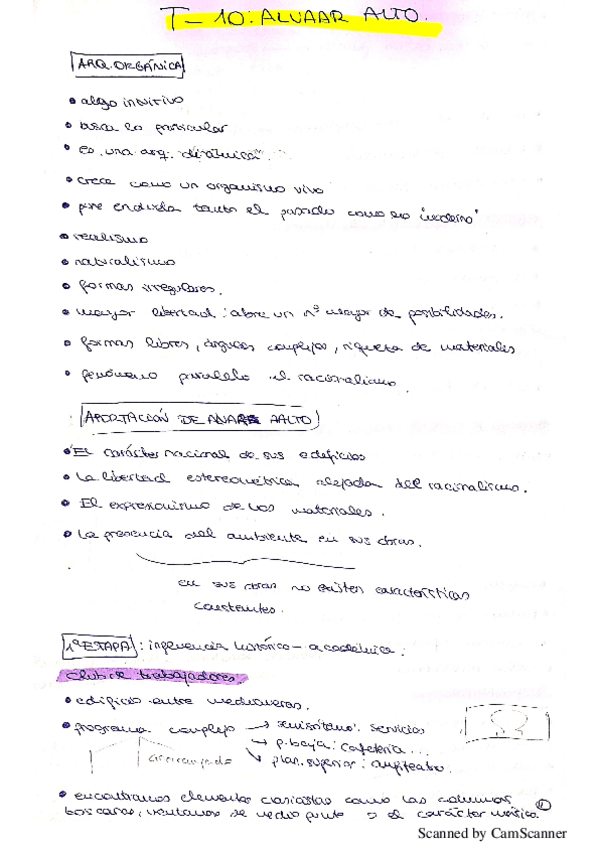 T-10: ALVAAR ALTO.
ARQ. ORGÁNICA
• algo intuitivo
• busca lo particular
• es una arq. "dinámica".
• crece como un organismo vivo
• pone en duda tanto el pasado como lo "moderno"
• realismo
• naturalismo
• formas irregulares.
• mayor libertad: abre un nº mayor de posibilidades.
• formas libres, ángulos complejos, riqueza de materiales
• fenómeno paralelo al racionalismo.
APORTACIÓN DE ALVAR AALTO
• El carácter nacional de sus edificios
• La libertad estereométrica alejada del racionalismo.
• El expresionismo de los materiales.
• La presencia del ambiente en sus obras.
en sus obras no existen características
constantes.
1ª ETAPA: influencia histórico-academica.
Club de trabajadores
• edificio entre medianeras.
• programa complejo → semisótano: servicios
→ p. baja: cafetería...
→ plan. superior: anfiteatro.
• encontramos elementos clasicistas como las columnas
toscanas, ventanas de medio punto o el carácter
1
Scanned by CamScanner